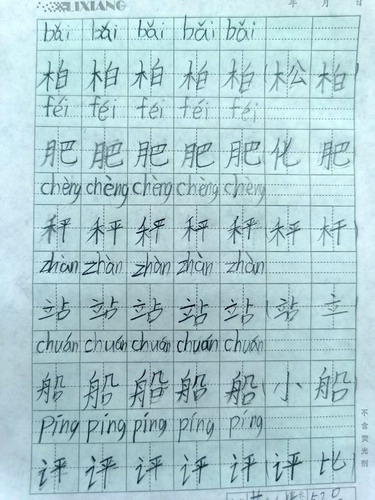 LIXIANG 年 月 日
bǎi bǎi bǎi bǎi bǎi
柏 柏 柏 柏 柏 (松 柏)
féi féi féi féi féi
肥 肥 肥 肥 肥 (化 肥)
chèng chèng chèng chèng chèng
秤 秤 秤 秤 秤 (秤 杆)
zhàn zhàn zhàn zhàn zhàn
站 站 站 站 站 (站 立)
chuán chuán chuán chuán chuán
船 船 船 船 船 (小 船)
píng píng píng píng píng
评 评 评 评 评 (评 比)
不含荧光剂